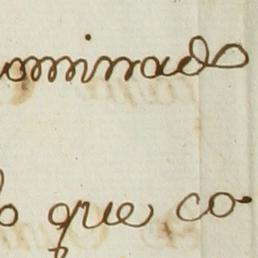 ominado
o que co